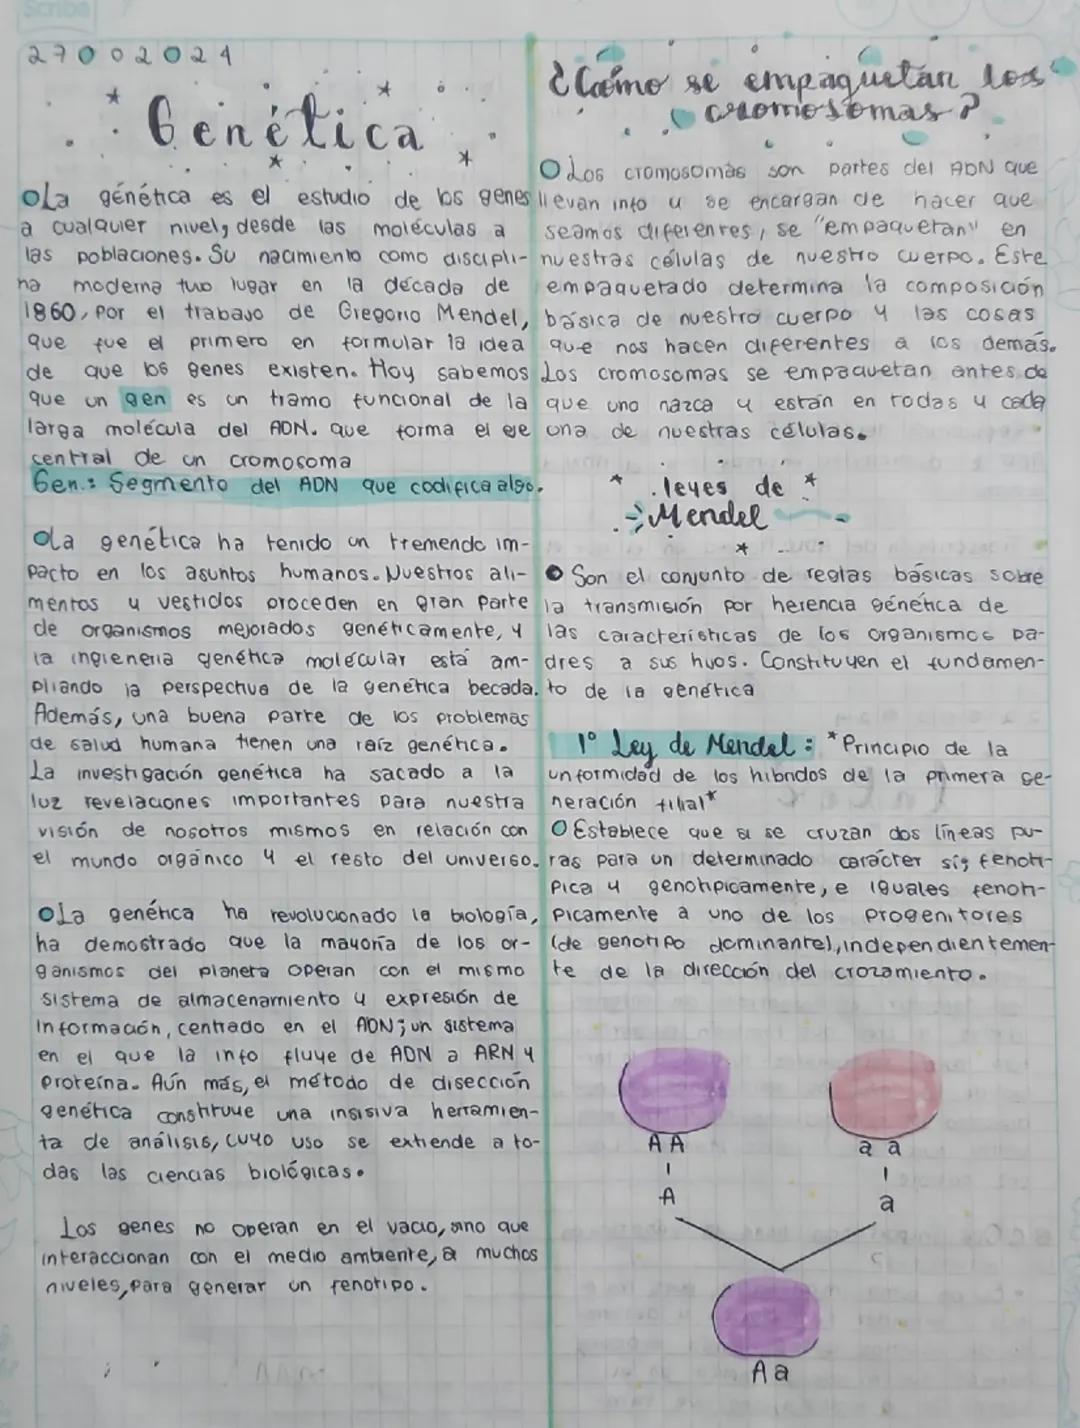 Scribe
27002024
Genética
○La génética es el estudio de los genes
a cualquier nivel, desde las moléculas a
las poblaciones. Su nacimiento como discipli-
na moderna tuo lugar en la década de
1860, por el trabajo de Gregorio Mendel,
que fue el primero en formular la idea
de que los genes existen. Hoy sabemos
que un gen es un tramo funcional de la
larga molécula del ADN. que forma el eje
central de un cromosoma
Gen.: Segmento del ADN que codifica algo.
○La genética ha tenido un tremendo im-
pacto en los asuntos humanos. Nuestros ali-
mentos y vestidos proceden en gran parte
de organismos mejorados genéticamente, y
la ingieneria genética molécular está am-
pliando la perspectiva de la genética becada.
Además, una buena parte de los problemas
de salud humana tienen una raíz genética.
La investigación genética ha sacado a la
luz revelaciones importantes para nuestra
visión de nosotros mismos en relación con
el mundo orgánico y el resto del universo.
○La genética ha revolucionado la biología,
ha demostrado que la mayoría de los or-
ganismos del planeta operan con el mismo
sistema de almacenamiento y expresión de
información, centrado en el ADN; un sistema
en el que la info fluye de ADN a ARN y
proteína. Aún más, el método de disección
genética constituye una insisiva herramien-
ta de análisis, cuyo uso se extiende a to-
das las ciencias biológicas.
Los genes no operan en el vacio, sino que
interaccionan con el medio ambiente, a muchos
niveles, para generar un fenotipo.
¿Cómo se empaquetan los
cromosomas?
○Los cromosomas son partes del ADN que
llevan info y se encargan de hacer que
seamos diferentes, se "empaquetan" en
nuestras células de nuestro cuerpo. Este
empaquetado determina la composición
básica de nuestro cuerpo y las cosas
que nos hacen diferentes a los demás.
Los cromosomas se empaquetan antes de
que uno nazca y están en todas y cada
una de nuestras células.
leyes de
Mendel
○Son el conjunto de reglas básicas sobre
la transmisión por herencia génetica de
las características de los organismos pa-
dres a sus hijos. Constituyen el fundamen-
to de la genética
1° Ley de Mendel: *Principio de la
uniformidad de los hibridos de la primera ge-
neración filial*
○Establece que si se cruzan dos líneas pu-
ras para un determinado carácter sig fenotí-
pica y genotipicamente, e iguales fenoti-
picamente a uno de los progenitores
(de genotipo dominante), independientemen-
te de la dirección del crozamiento.
AA a a
A a
Aa